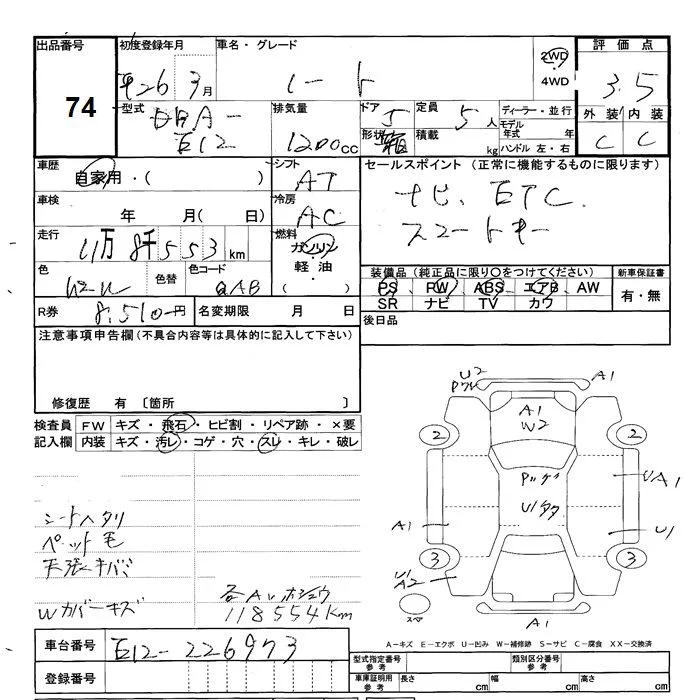 出品番号 74
初度登録年月 平26 3月
車名・グレード ノート
2WD
4WD
評価点 3.5
外装 内装
C C
型式 DBA-
E12
排気量 1200cc
ドア 5
形状 箱
定員 5人
積載 kg
ディーラー・並行
モデル年式 年
ハンドル 左・右
車歴 自家用・( )
シフト AT
セールスポイント (正常に機能するものに限ります)
ナビ、ETC.
スマートキー
車検 年 月( 日)
冷房 AC
走行 11万8千553km
燃料 ガソリン
軽油・
( )
色
色替
色コード QAB
装備品(純正品に限り○をつけてください)
PS PW ABS エアB AW
SR ナビ TV カワ
新車保証書
有・無
R券 8,510円
名変期限 月 日
後日品
注意事項申告欄(不具合内容等は具体的に記入して下さい)
修復歴 有 〔箇所 〕
検査員 FW キズ・飛石・ヒビ割・リペア跡・×要
記入欄 内装 キズ・汚レ・コゲ・穴・スレ・キレ・破レ
シートヘタリ
ペット毛
天張キバミ
Wカバーキズ
118554km
U2 A1
A1
W2
2 2
UA1
A1 U1
3 3
U1
A2
スペア
A1
A-キズ E-エクボ U-凹み W-補修跡 S-サビ C-腐食 XX-交換済
車台番号 E12-226973
登録番号
型式指定番号 参考
類別区分番号 参考
車庫証明用 参考 長さ cm 幅 cm 高さ cm